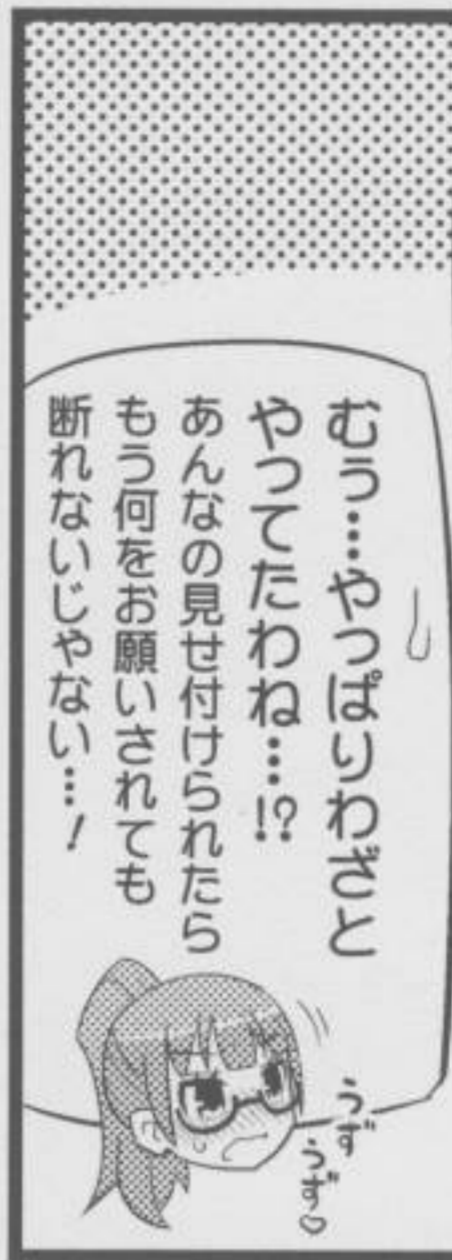 むぅ…やっぱりわざと
やってたわね…!?
あんなの見せ付けられたら
もう何をお願いされても
断れないじゃない…！
うず
うず♡